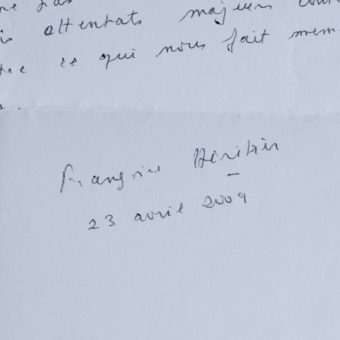 attentats majeurs
ce qui nous fait mem
Françoise Héritier
23 avril 2009